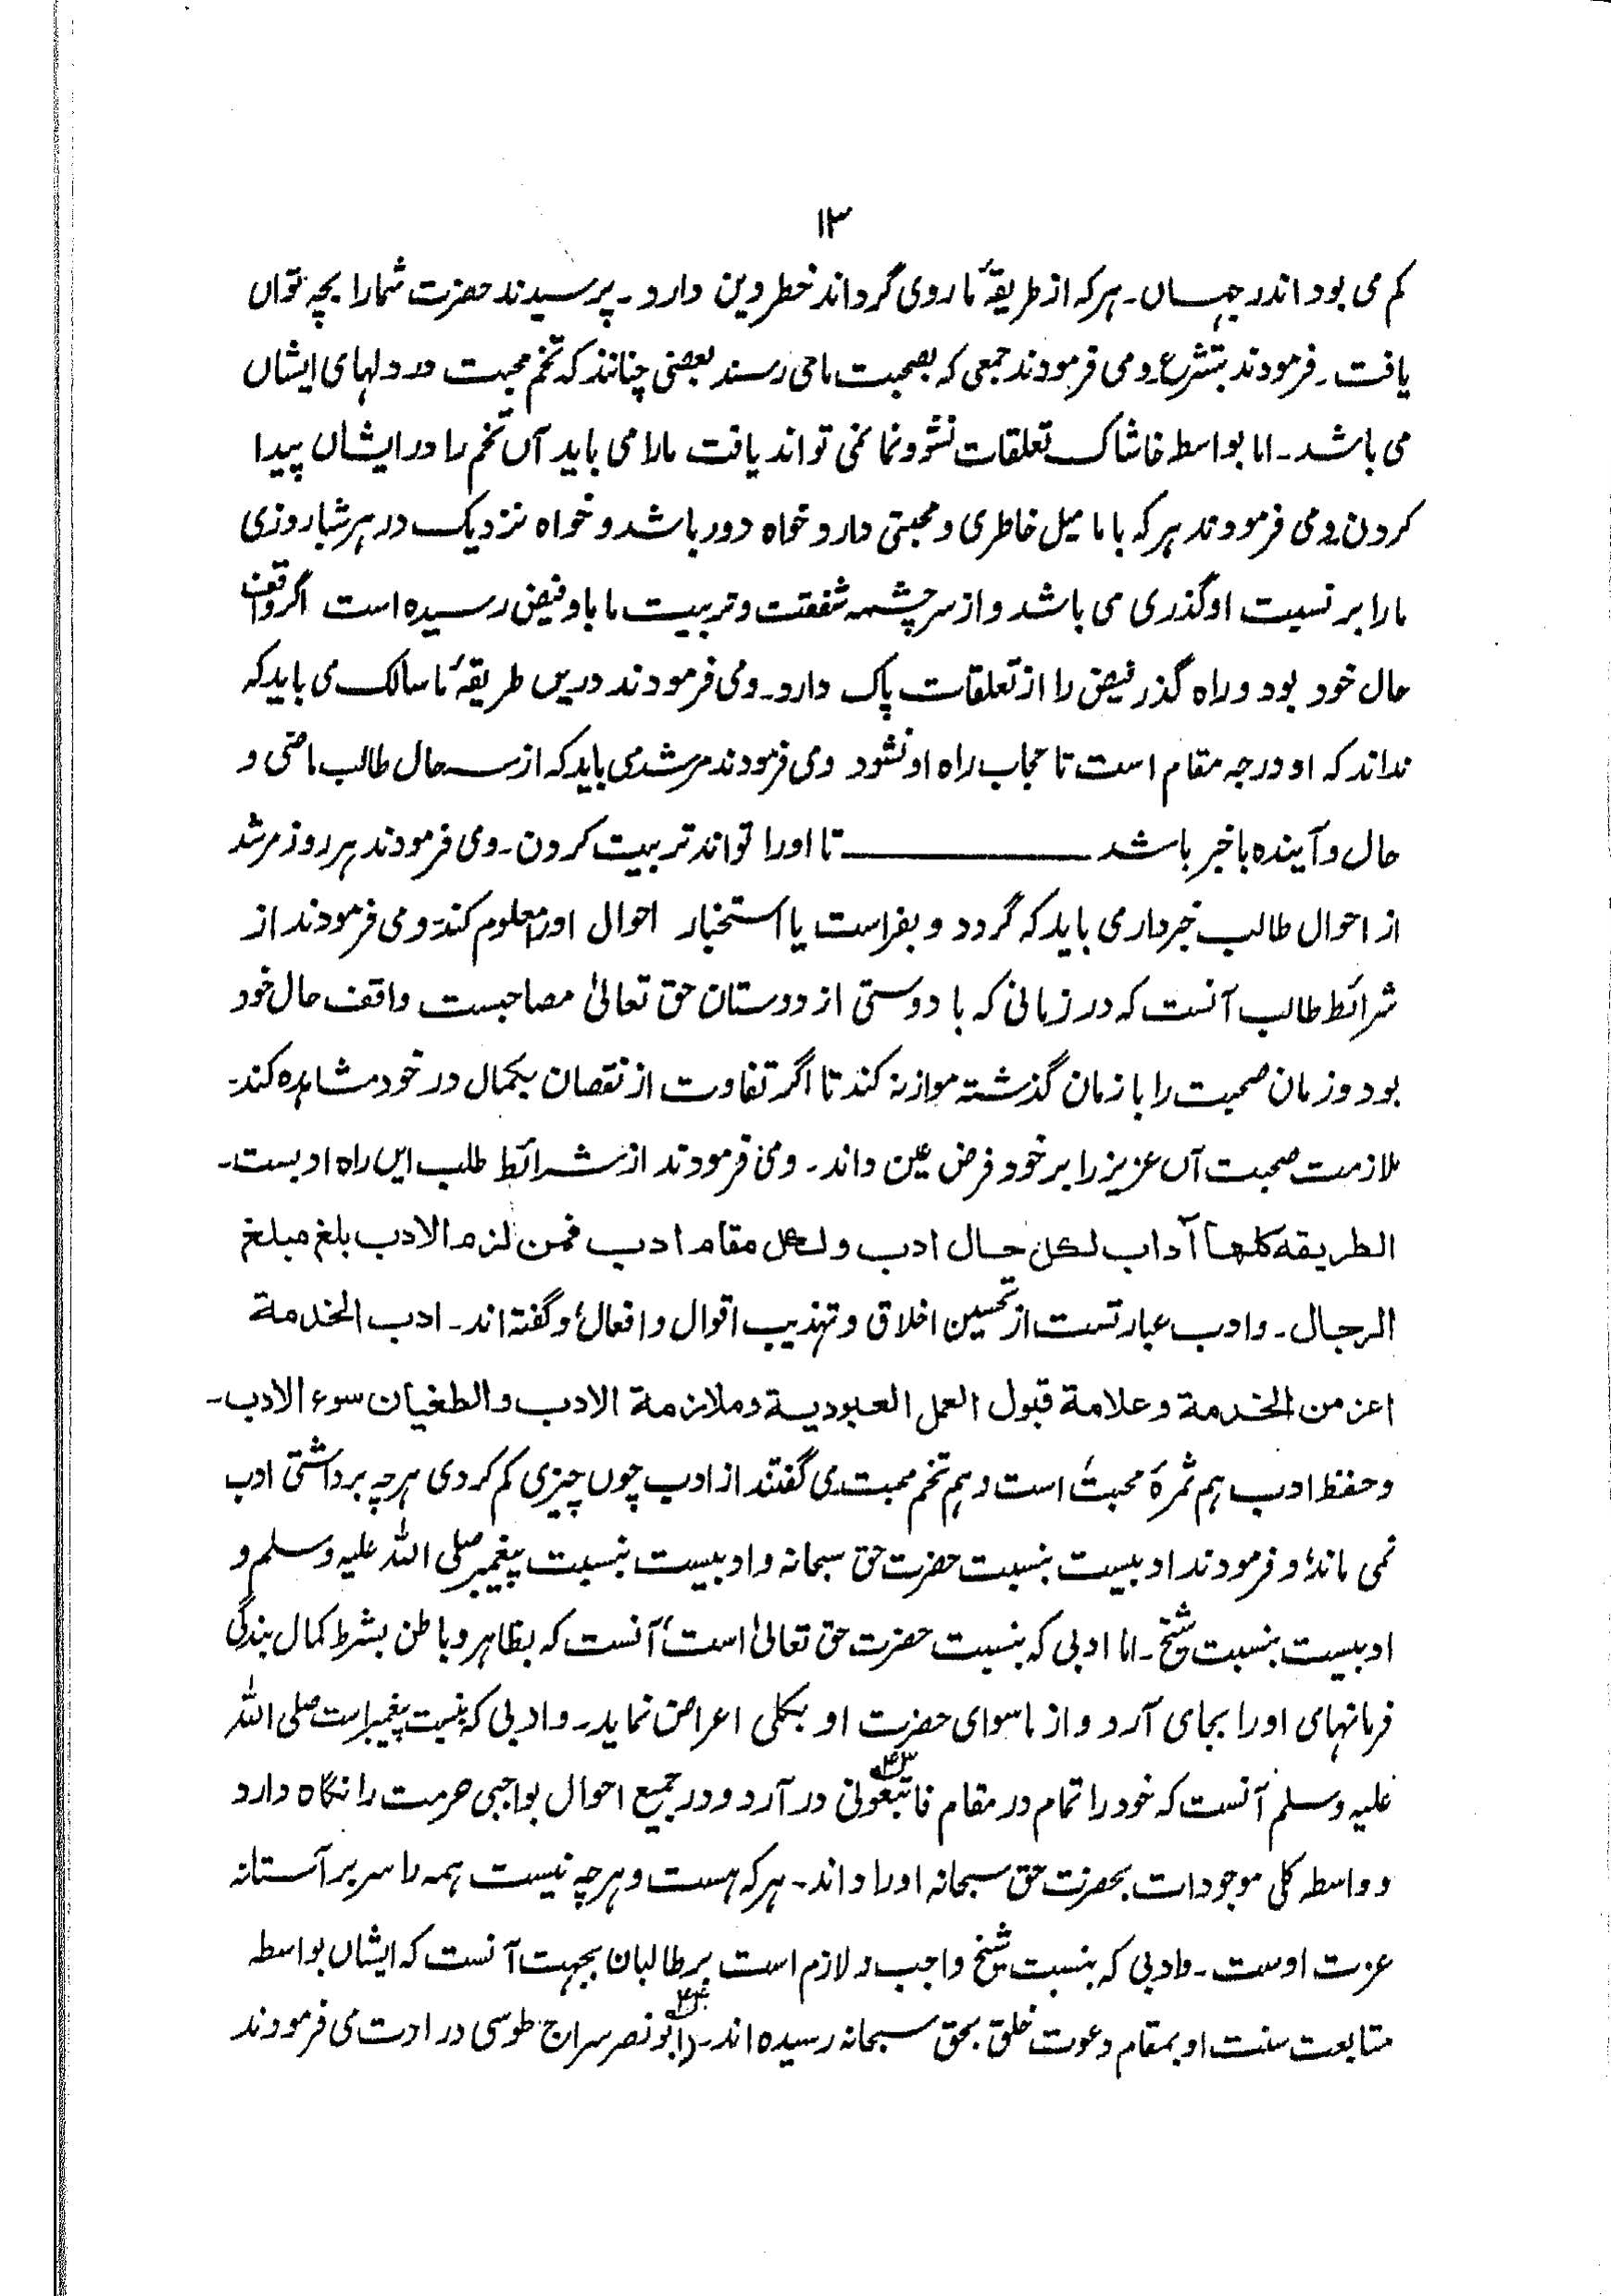 ۱۳
کم می بود اندر جہاں۔ ہر کہ از طریقۂ ما روی گرداند خطر دین دارد۔ پرسیدند حضرت شما را بچہ تواں
یافت۔ فرمودند بتشرع و می فرمودند جمعی کہ بصحبت ما می رسند بعضی چنانند کہ تخم محبت در دلہای ایشاں
می باشد۔ اما بواسطہ خاشاک تعلقات نشو و نما نمی تواند یافت ما را می باید آں تخم را در ایشاں پیدا
کردن و می فرمودند ہر کہ با ما میل خاطری و محبتی دارد خواہ دور باشد و خواہ نزدیک در ہر شبا روزی
ما را بر نسبت او گذری می باشد و از سرچشمہ شفقت و تربیت ما باو فیض رسیدہ است اگر واقف
حال خود بود و راہ گذر فیض را از تعلقات پاک دارد۔ و می فرمودند دریں طریقۂ ما سالک می باید کہ
نداند کہ او در چہ مقام است تا حجاب راہ او نشود و می فرمودند مرشد می باید کہ از سہ حال طالب ماضی و
حال و آیندہ با خبر باشد ــــــــــــ تا او را تواند تربیت کردن۔ و می فرمودند ہر روز مرشد
از احوال طالب خبردار می باید کہ گردد و بفراست یا استخبار احوال او را معلوم کند۔ و می فرمودند از
شرائط طالب آنست کہ در زمانی کہ با دوستی از دوستان حق تعالیٰ مصاحبست واقف حال خود
بود و زمان صحبت را با زمان گذشتہ موازنہ کند تا اگر تفاوت از نقصان بکمال در خود مشاہدہ کند۔
ملازمت صحبت آں عزیز را بر خود فرض عین داند۔ و می فرمودند از شرائط طلب ایں راہ ادبست۔
الطریقہ کلھا آداب لکل حال ادب ولکل مقام ادب فمن لزم الادب بلغ مبلغ
الرجال۔ و ادب عبارتست از تحسین اخلاق و تہذیب اقوال و افعال و گفتہ اند۔ ادب الخدمة
اعز من الخدمة وعلامة قبول العمل العبودیة وملازمة الادب والطغیان سوء الادب۔
و حفظ ادب ہم ثمرۂ محبت است و ہم تخم محبت می گفتند از ادب چوں چیزی کم کردی ہر چہ برداشتی ادب
نمی ماند و فرمودند ادبیست بنسبت حضرت حق سبحانہ و ادبیست بنسبت پیغمبر صلی اللہ علیہ وسلم و
ادبیست بنسبت شیخ۔ اما ادبی کہ بنسبت حضرت حق تعالیٰ است آنست کہ بظاہر و باطن بشرط کمال بندگی
فرمانہای او را بجای آرد و از ماسوای حضرت او بکلی اعراض نماید۔ و ادبی کہ بنسبت پیغمبر است صلی اللہ
علیہ وسلم آنست کہ خود را تمام در مقام فاتبعونی در آرد و در جمیع احوال بواجبی حرمت را نگاہ دارد
و واسطہ کل موجودات بحضرت حق سبحانہ او را داند۔ ہر کہ ہست و ہر چہ نیست ہمہ را سر بر آستانہ
عزت اوست۔ و ادبی کہ بنسبت شیخ واجب و لازم است بر طالبان بجہت آنست کہ ایشاں بواسطہ
متابعت سنت او بمقام دعوت خلق بحق سبحانہ رسیدہ اند۔ (ابو نصر سراج طوسی در ادب می فرمودند